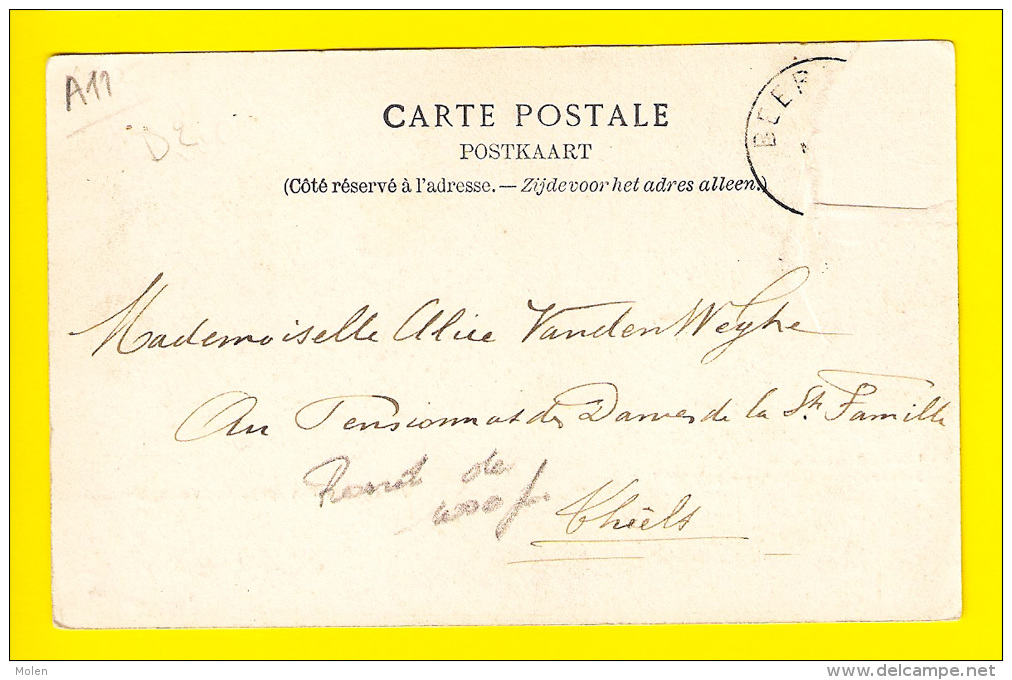 A11
CARTE POSTALE
POSTKAART
(Côté réservé à l'adresse. — Zijde voor het adres alleen.)
BEER
Mademoiselle Alice Vanden Weghe
Au Pensionnat des Dames de la Ste Famille
de
Thielt
Molen
www.delcampe.net